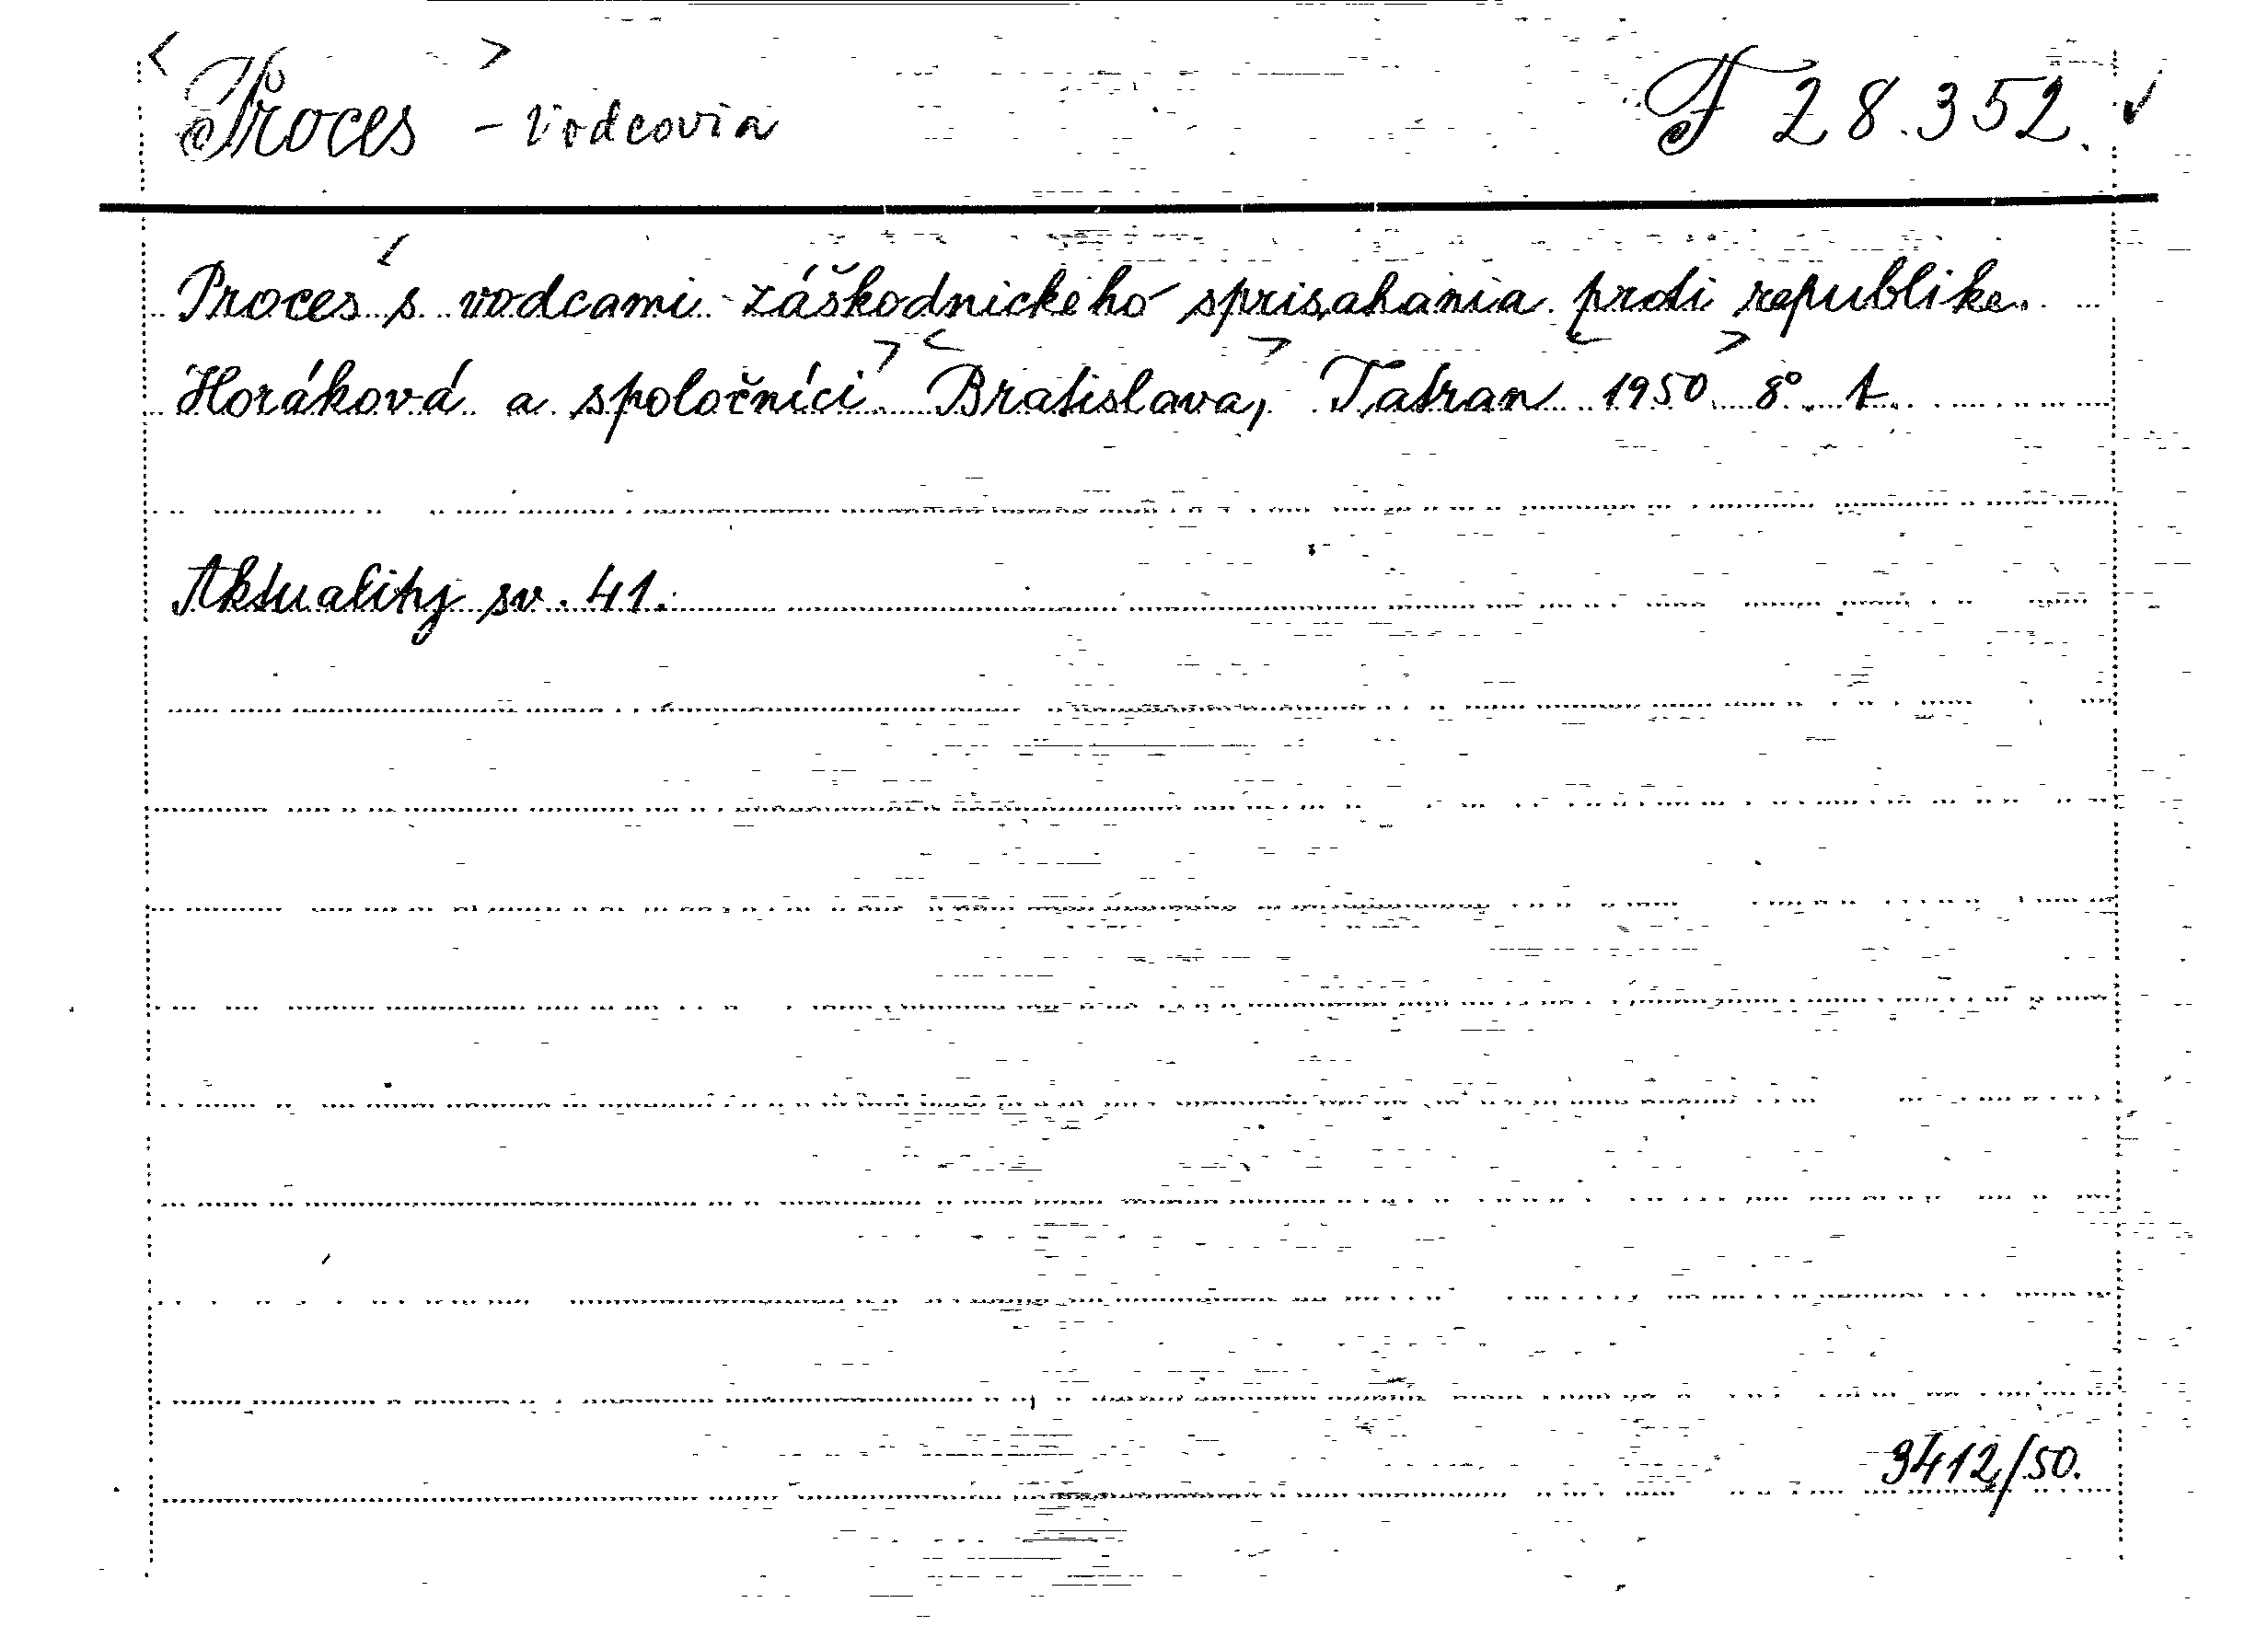 Proces - vodcovia F 28.352.
Proces s vodcami záškodnického sprisahania proti republike.
Horáková a spoločníci. Bratislava, Tatran 1950 8° 1.
Aktuality sv. 41.
3412/50.